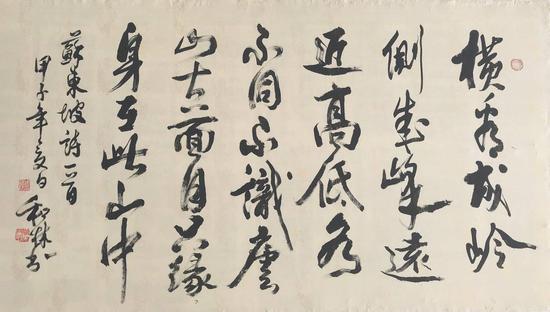 横看成岭
側成峰遠
近高低各
不同不識廬
山真面目只緣
身在此山中
蘇東坡詩一首
甲子年夏日 和林书